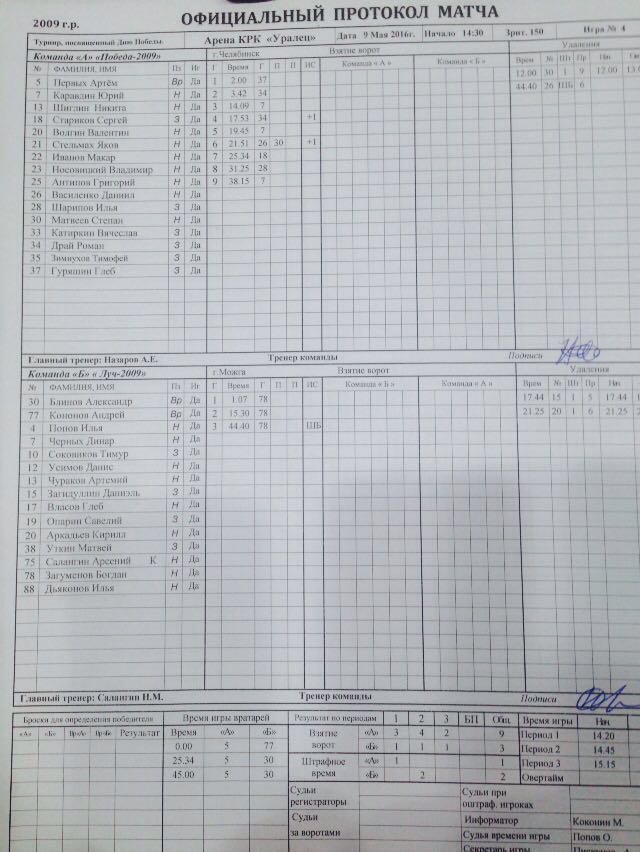 ОФИЦИАЛЬНЫЙ ПРОТОКОЛ МАТЧА
2009 г.р.
Турнир, посвященный Дню Победы. Арена КРК «Уралец» Дата 9 Мая 2016г. Начало 14:30 Зрит. 150 Игра № 4
Команда «А» «Победа-2009» г.Челябинск Взятие ворот Удаления
№ ФАМИЛИЯ, ИМЯ Пз Иг Г Время Г П П ИС Команда « А » Команда « Б » Врем № Шт Пр Нач
5 Первых Артём Вр Да 1 2.00 37 12.00 30 1 9 12.00
7 Каравдин Юрий Н Да 2 3.42 34 44.40 26 ШБ 6
13 Шиглин Никита Н Да 3 14.09 7
18 Стариков Сергей З Да 4 17.53 34 +1
20 Волгин Валентин Н Да 5 19.45 7
21 Стельмах Яков Н Да 6 21.51 26 30 +1
22 Иванов Макар Н Да 7 25.34 18
23 Носовицкий Владимир Н Да 8 31.25 28
25 Антипов Григорий Н Да 9 38.15 7
26 Василенко Даниил Н Да
28 Шарипов Илья З Да
30 Матвеев Степан Н Да
33 Катиркин Вячеслав З Да
34 Драй Роман З Да
35 Зимнухов Тимофей З Да
37 Гуряшин Глеб З Да
Главный тренер: Назаров А.Е. Тренер команды Подписи
Команда «Б» « Луч-2009» г.Можга Взятие ворот Удаления
№ ФАМИЛИЯ, ИМЯ Пз Иг Г Время Г П П ИС Команда « Б » Команда « А » Врем № Шт Пр Нач
30 Блинов Александр Вр Да 1 1.07 78 17.44 15 1 5 17.44
77 Кононов Андрей Вр Да 2 15.30 78 21.25 20 1 6 21.25
4 Попов Илья Н Да 3 44.40 78 ШБ
7 Черных Динар Н Да
10 Соковиков Тимур З Да
12 Усимов Данис Н Да
13 Чураков Артемий Н Да
15 Загидуллин Даниэль З Да
17 Власов Глеб Н Да
19 Опарин Савелий З Да
20 Аркадьев Кирилл Н Да
38 Уткин Матвей З Да
75 Салангин Арсений К Н Да
78 Загуменов Богдан Н Да
88 Дьяконов Илья Н Да
Главный тренер: Салангин И.М. Тренер команды Подписи
Броски для определения победителя Время игры вратарей Результат по периодам 1 2 3 БП Общ Время игры Нач
«А» «Б» Вр«А» Вр«Б» Результат Время «А» «Б» Взятие ворот «А» 3 4 2 9 Период 1 14.20
0.00 5 77 «Б» 1 1 1 3 Период 2 14.45
25.34 5 30 Штрафное время «А» 1 1 Период 3 15.15
45.00 5 30 «Б» 2 2 Овертайм
Судьи регистраторы Судьи при оштраф. игроках
Судьи за воротами Информатор Коконин М.
Судья времени игры Попов О.
Секретарь игры